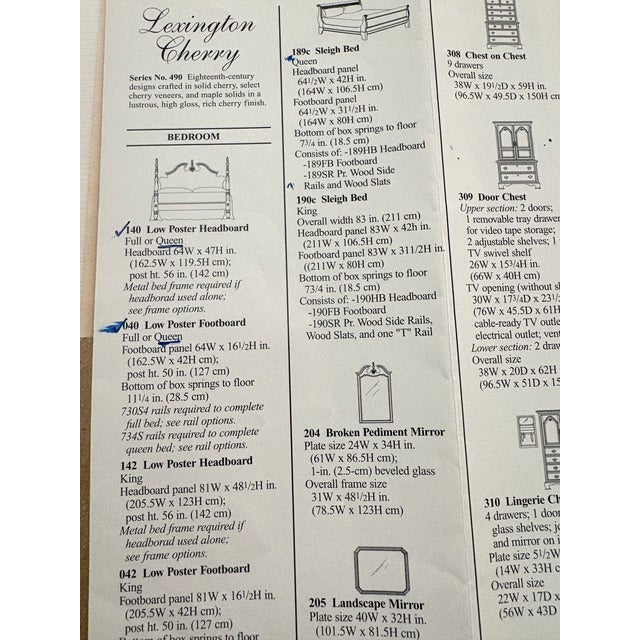 Lexington
Cherry
Series No. 490 Eighteenth-century
designs crafted in solid cherry, select
cherry veneers, and maple solids in a
lustrous, high gloss, rich cherry finish.
BEDROOM
140 Low Poster Headboard
Full or Queen
Headboard 64W x 47H in.
(162.5W x 119.5H cm);
post ht. 56 in. (142 cm)
Metal bed frame required if
headborad used alone;
see frame options.
040 Low Poster Footboard
Full or Queen
Footboard panel 64W x 161/2H in.
(162.5W x 42H cm);
post ht. 50 in. (127 cm)
Bottom of box springs to floor
111/4 in. (28.5 cm)
730S4 rails required to complete
full bed; see rail options.
734S rails required to complete
queen bed; see rail options.
142 Low Poster Headboard
King
Headboard panel 81W x 481/2H in.
(205.5W x 123H cm);
post ht. 56 in. (142 cm)
Metal bed frame required if
headborad used alone;
see frame options.
042 Low Poster Footboard
King
Footboard panel 81W x 161/2H in.
(205.5W x 42H cm);
post ht. 50 in. (127 cm)
Bottom of box springs to floor
189c Sleigh Bed
Queen
Headboard panel
641/2W x 42H in.
(164W x 106.5H cm)
Footboard panel
641/2W x 311/2H in.
(164W x 80H cm)
Bottom of box springs to floor
73/4 in. (18.5 cm)
Consists of: -189HB Headboard
-189FB Footboard
-189SR Pr. Wood Side
Rails and Wood Slats
190c Sleigh Bed
King
Overall width 83 in. (211 cm)
Headboard panel 83W x 42h in.
(211W x 106.5H cm)
Footboard panel 83W x 311/2H in.
((211W x 80H cm)
Bottom of box springs to floor
73/4 in. (18.5 cm)
Consists of: -190HB Headboard
-190FB Footboard
-190SR Pr. Wood Side Rails,
Wood Slats, and one "T" Rail
204 Broken Pediment Mirror
Plate size 24W x 34H in.
(61W x 86.5H cm);
1-in. (2.5-cm) beveled glass
Overall frame size
31W x 481/2H in.
(78.5W x 123H cm)
205 Landscape Mirror
Plate size 40W x 32H in.
(101.5W x 81.5H cm)
308 Chest on Chest
9 drawers
Overall size
38W x 191/2D x 59H in.
(96.5W x 49.5D x 150H cm
309 Door Chest
Upper section: 2 doors;
1 removable tray drawer
for video tape storage;
2 adjustable shelves; 1
TV swivel shelf
26W x 153/4H in.
(66W x 40H cm)
TV opening (without sh
30W x 173/4D x 231/
(76W x 45.5D x 61H
cable-ready TV outle
electrical outlet; vent
Lower section: 2 draw
Overall size
38W x 20D x 62H
(96.5W x 51D x 15
310 Lingerie Ch
4 drawers; 1 door
glass shelves; je
and mirror on i
Plate size 51/2W
(14W x 33H c
Overall size
22W x 17D x
(56W x 43D